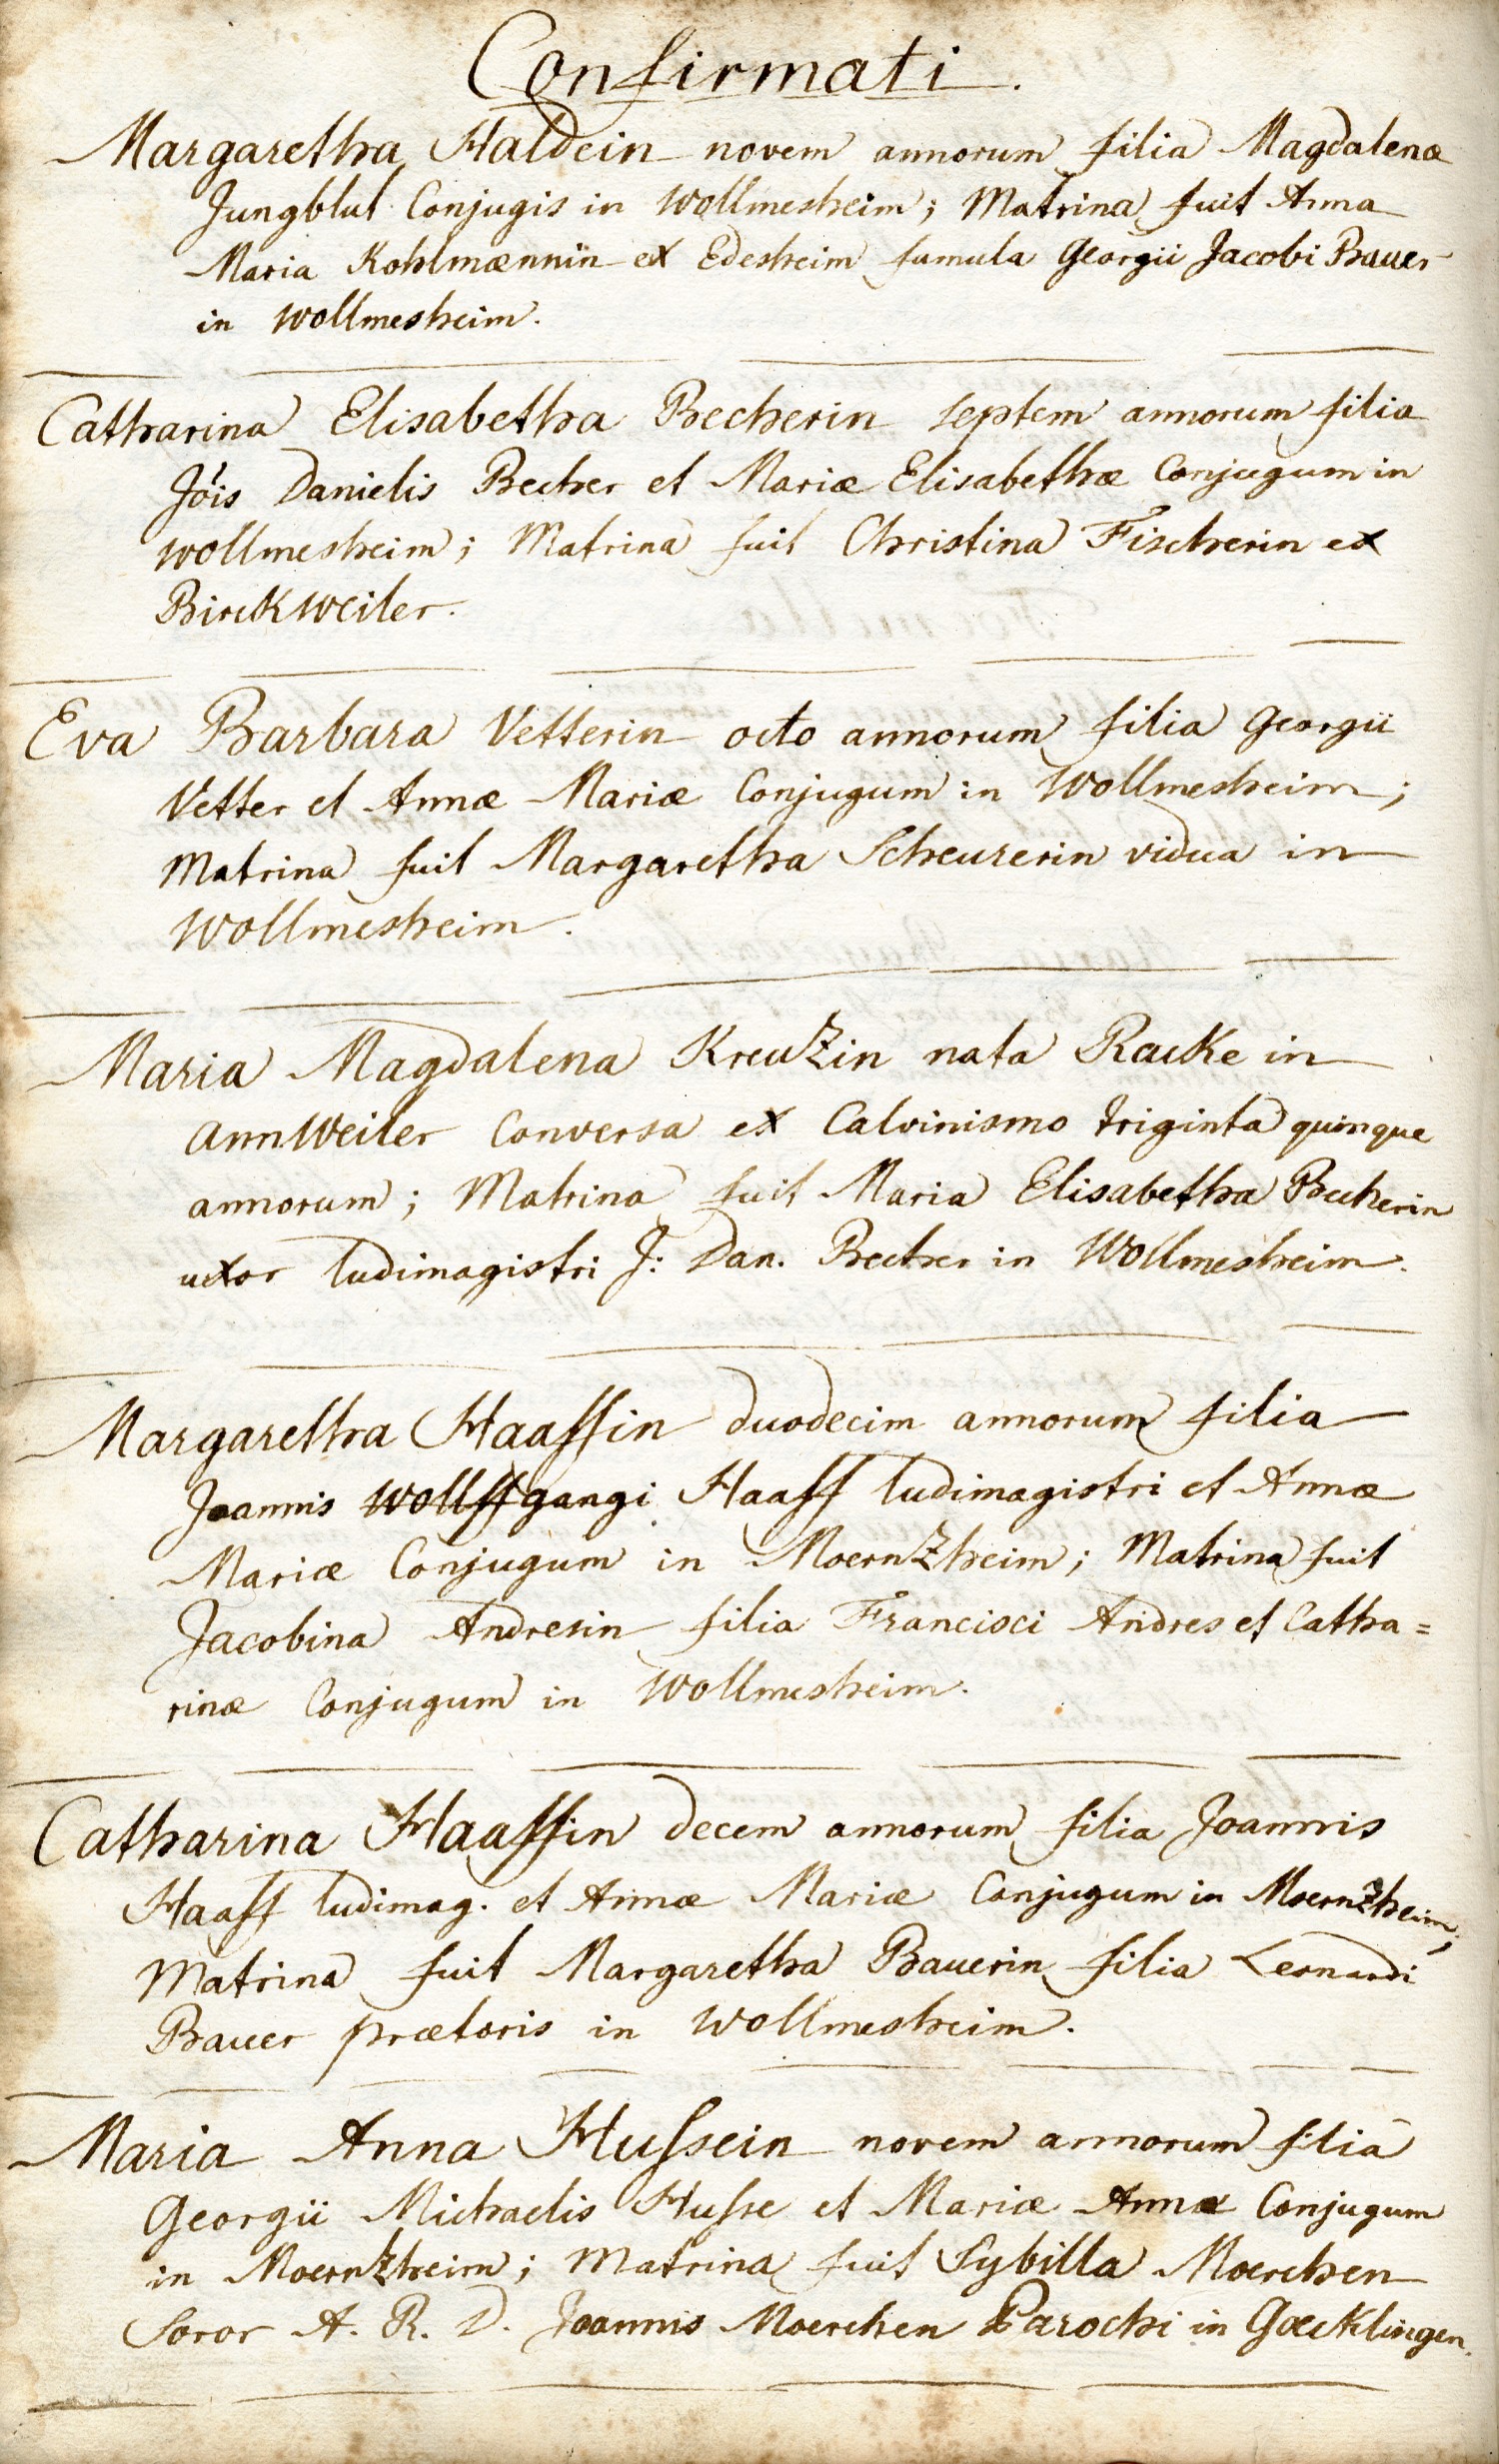 Confirmati.
Margaretha Haldein novem annorum filia Magdalenæ
Jungblut Conjugis in Wollmesheim; Matrina fuit Anna
Maria Kohlmænnin ex Edesheim famula Georgii Jacobi Bauer
in Wollmesheim.
Catharina Elisabetha Becherin septem annorum filia
Jôis Danielis Becher et Mariæ Elisabethæ Conjugum in
Wollmesheim; Matrina fuit Christina Fischerin ex
Birckweiler.
Eva Barbara Vetterin octo annorum filia Georgii
Vetter et Annæ Mariæ Conjugum in Wollmesheim;
Matrina fuit Margaretha Scheurerin vidua in
Wollmesheim.
Maria Magdalena Kreutzin nata Racke in
Annweiler Conversa ex Calvinismo triginta quinque
annorum; Matrina fuit Maria Elisabetha Becherin
uxor ludimagistri J: Dan. Becher in Wollmesheim.
Margaretha Haaffin duodecim annorum filia
Joannis Wollffgangi Haaff ludimagistri et Annæ
Mariæ Conjugum in Moerntzheim; Matrina fuit
Jacobina Andresin filia Francisci Andres et Catha=
rinæ Conjugum in Wollmesheim.
Catharina Haaffin decem annorum filia Joannis
Haaff ludimag. et Annæ Mariæ Conjugum in Moerntzheim;
Matrina fuit Margaretha Bauerin filia Leonardi
Bauer prætoris in Wollmesheim.
Maria Anna Hussein novem annorum filia
Georgii Michaelis Husse et Mariæ Annæ Conjugum
in Moerntzheim; Matrina fuit Sybilla Moerchen
Soror A. R. D. Joannis Moerchen Parochi in Gœcklingen.